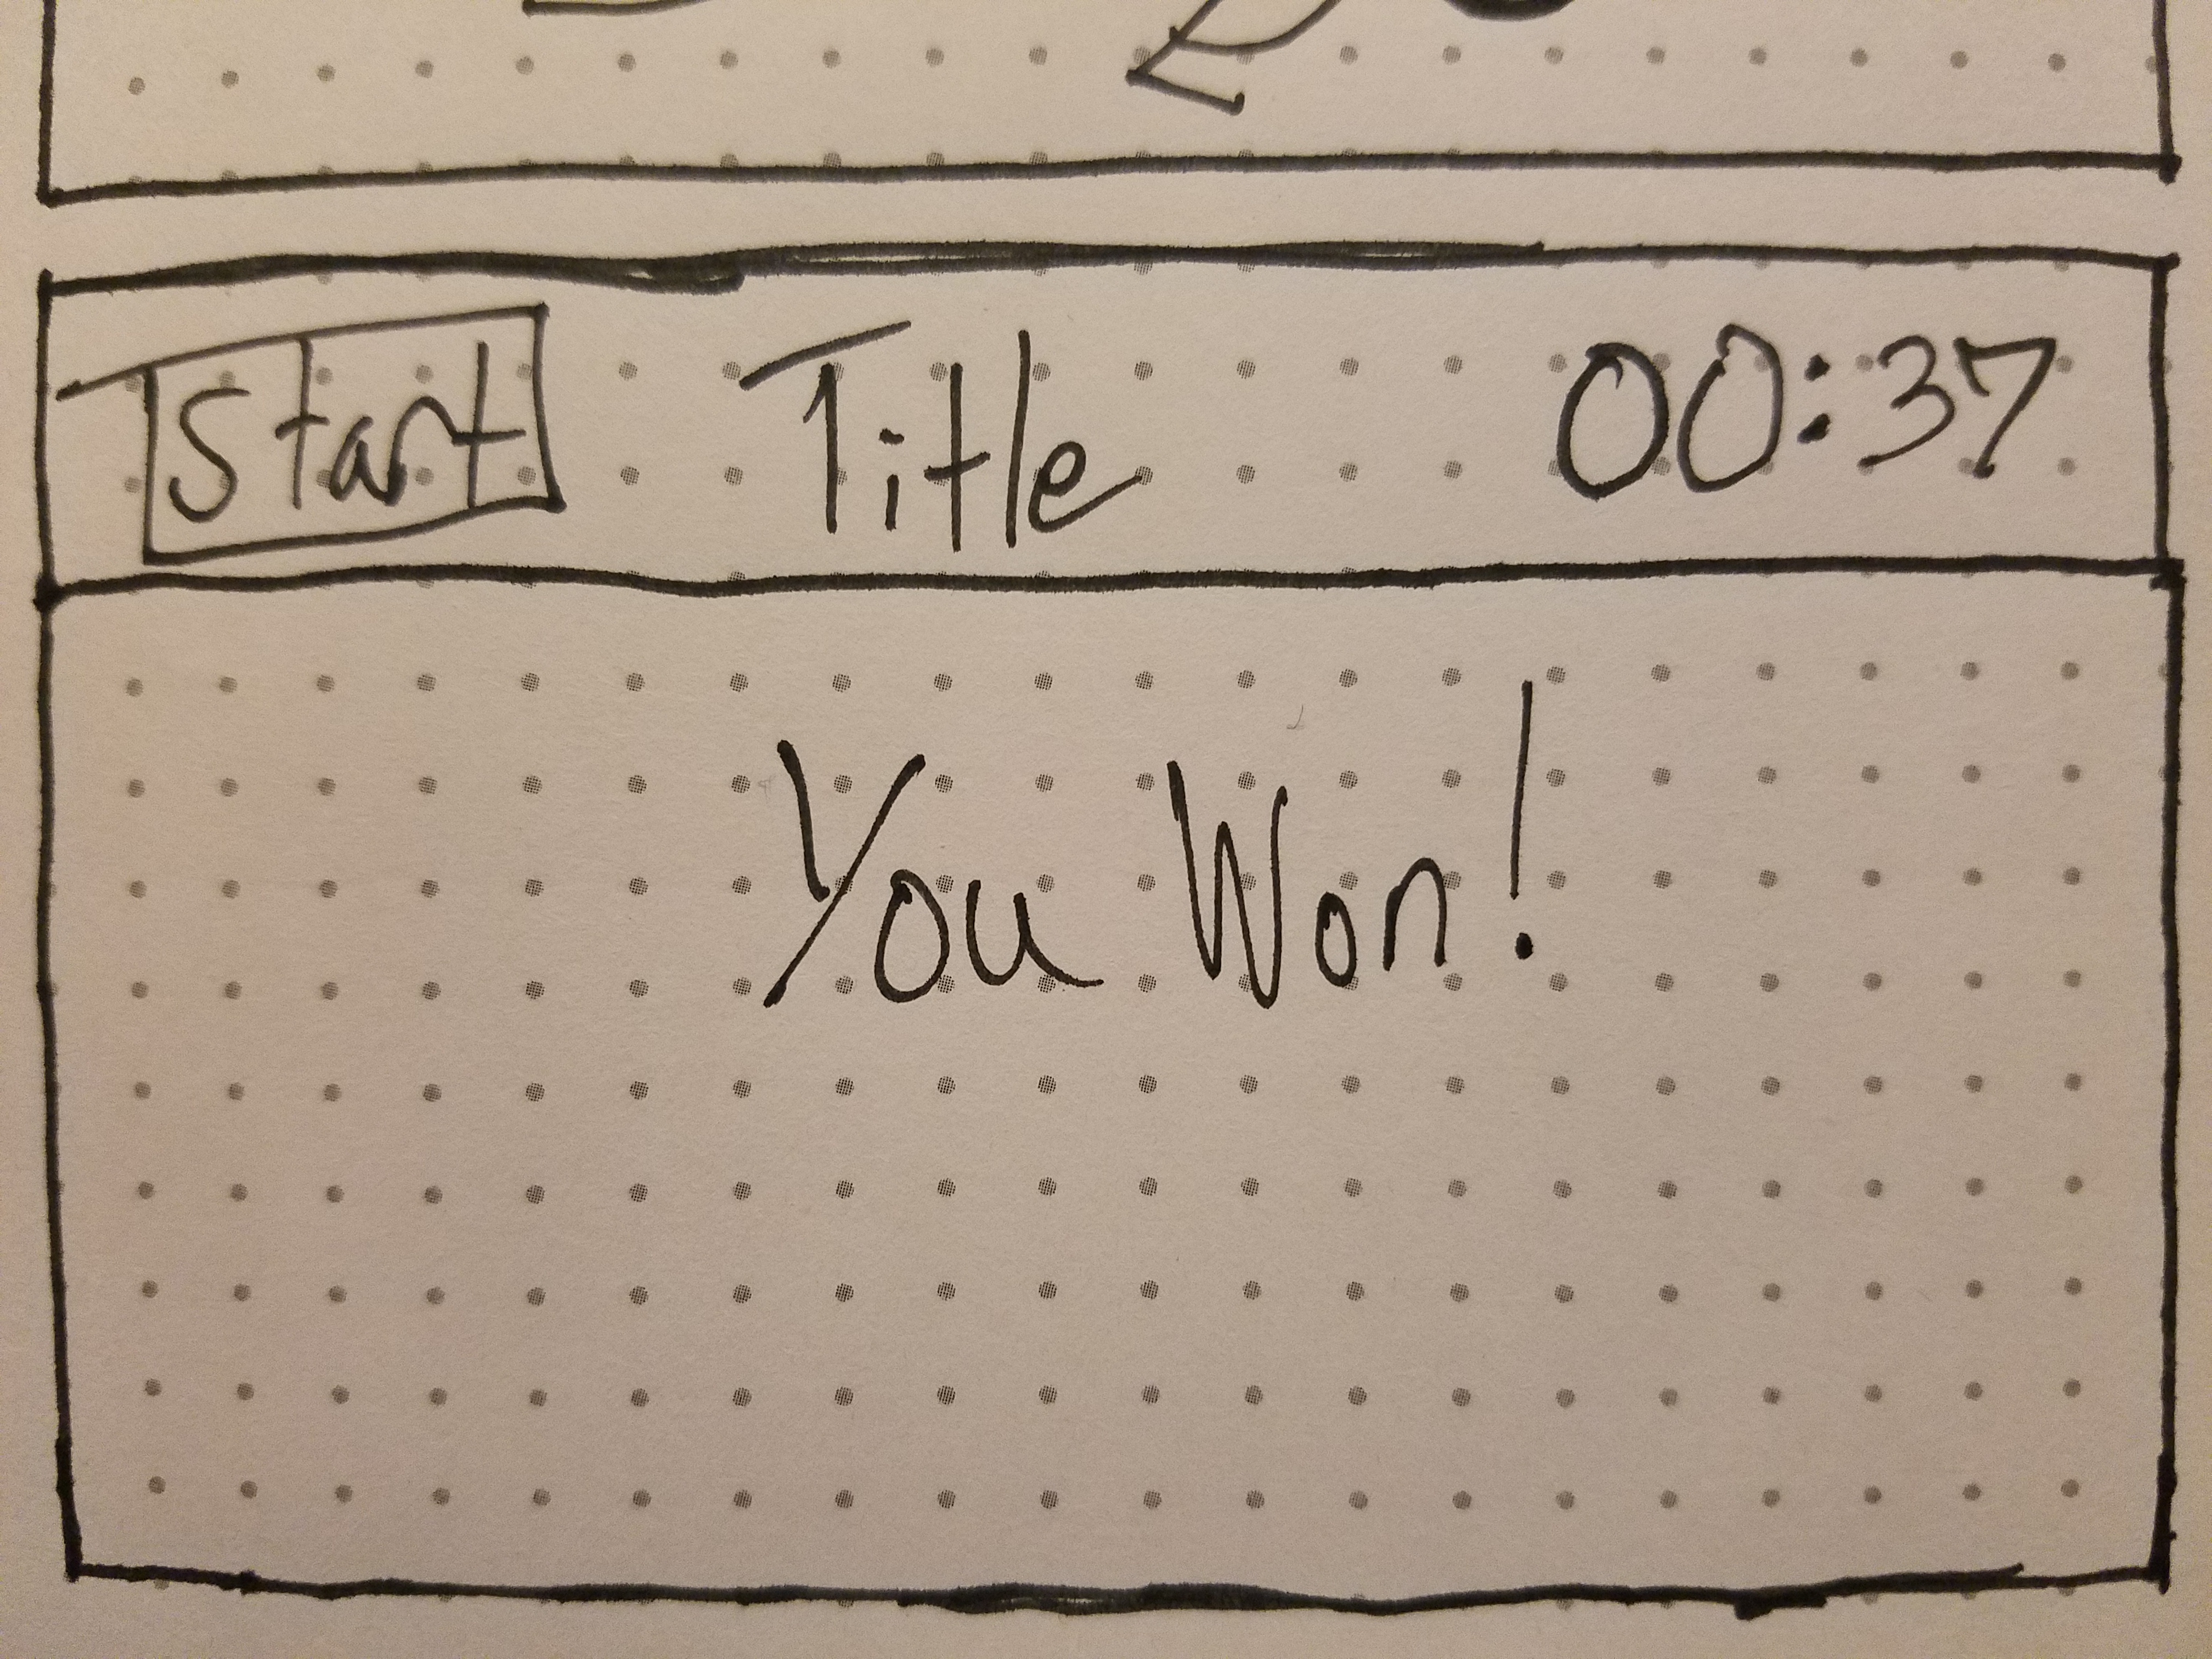 Start Title 00:37
You Won!